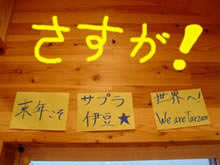 さすが!
来年こそ
サプラ
伊豆★
世界へ!
We are Tarzan